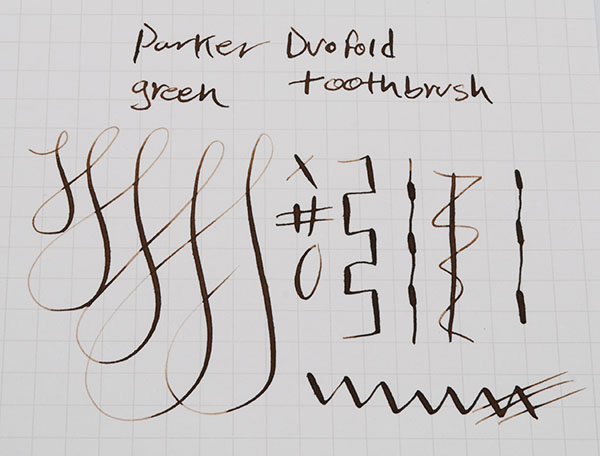 Parker Duofold
green toothbrush